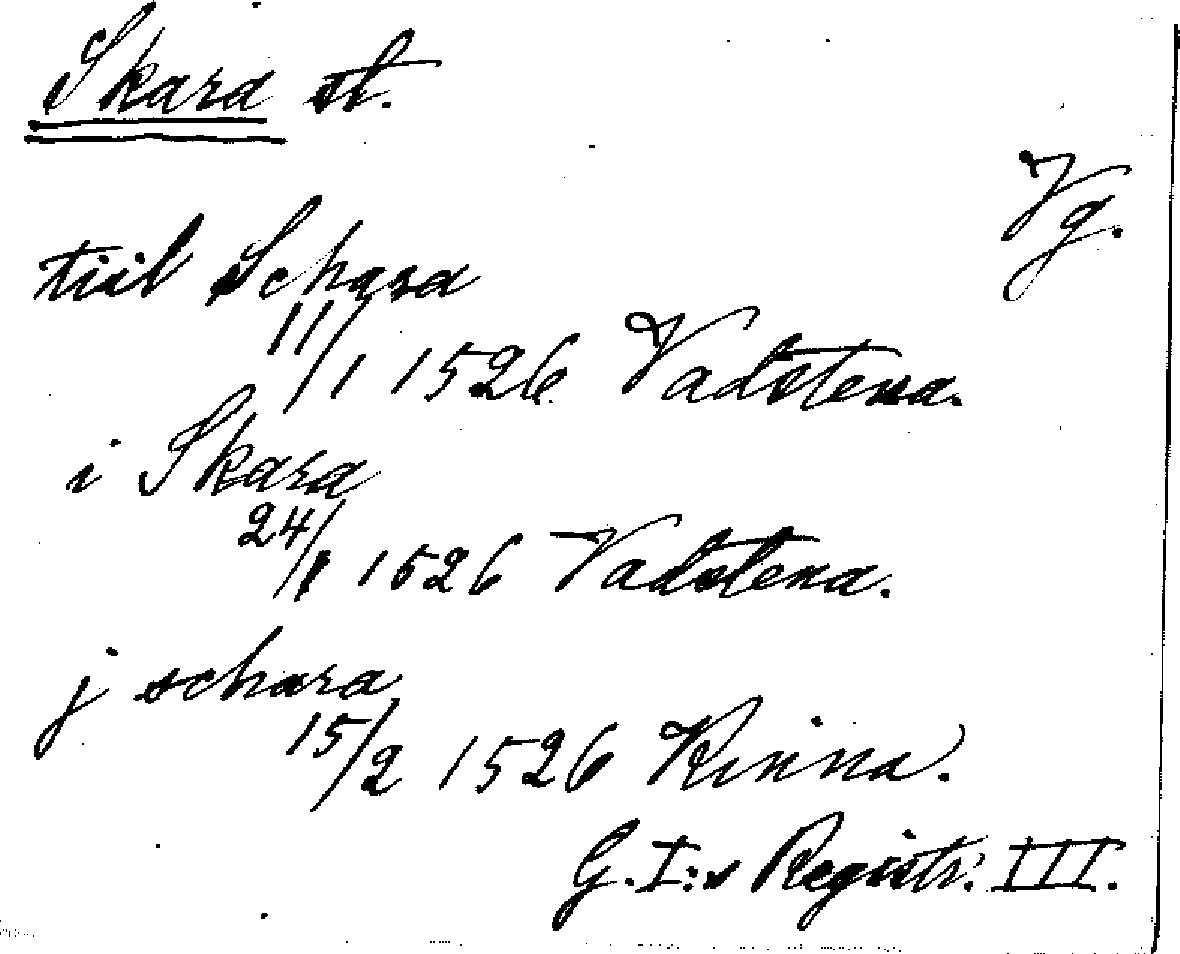 Skara st.
Vg.
tiil Schara
11/1 1526 Vadstena.
i Skara
24/1 1526 Vadstena.
j schara
15/2 1526 Kinna.
G. I:s Registr. III.